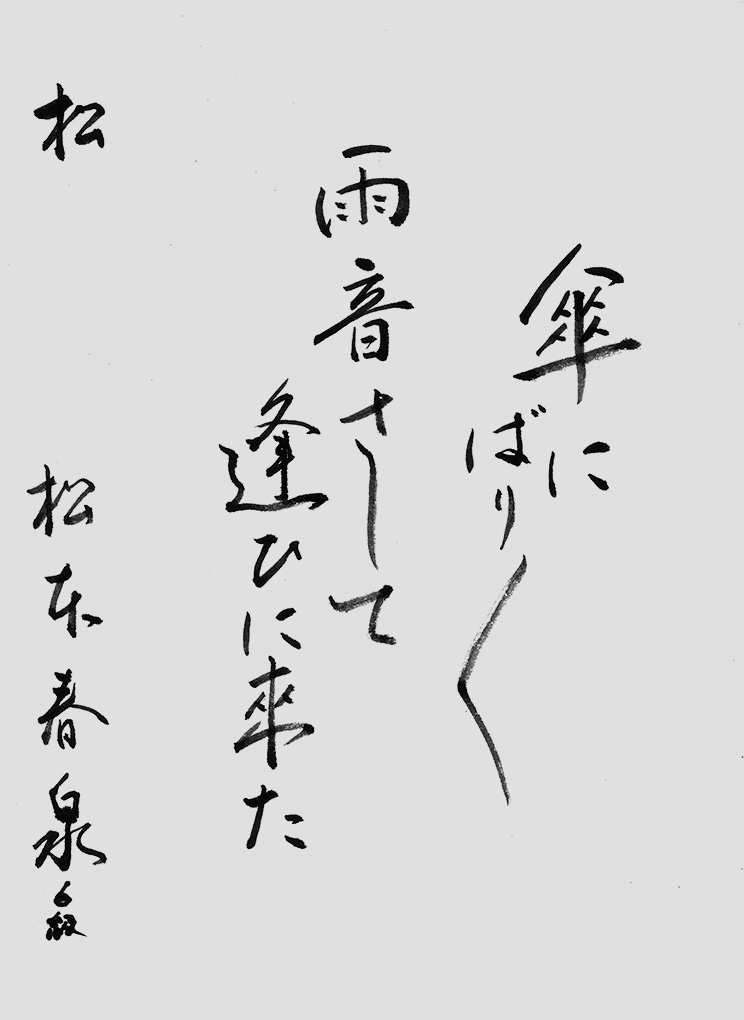 傘に
ばり〱
雨音さして
逢ひに來た
松 松本春泉 6級